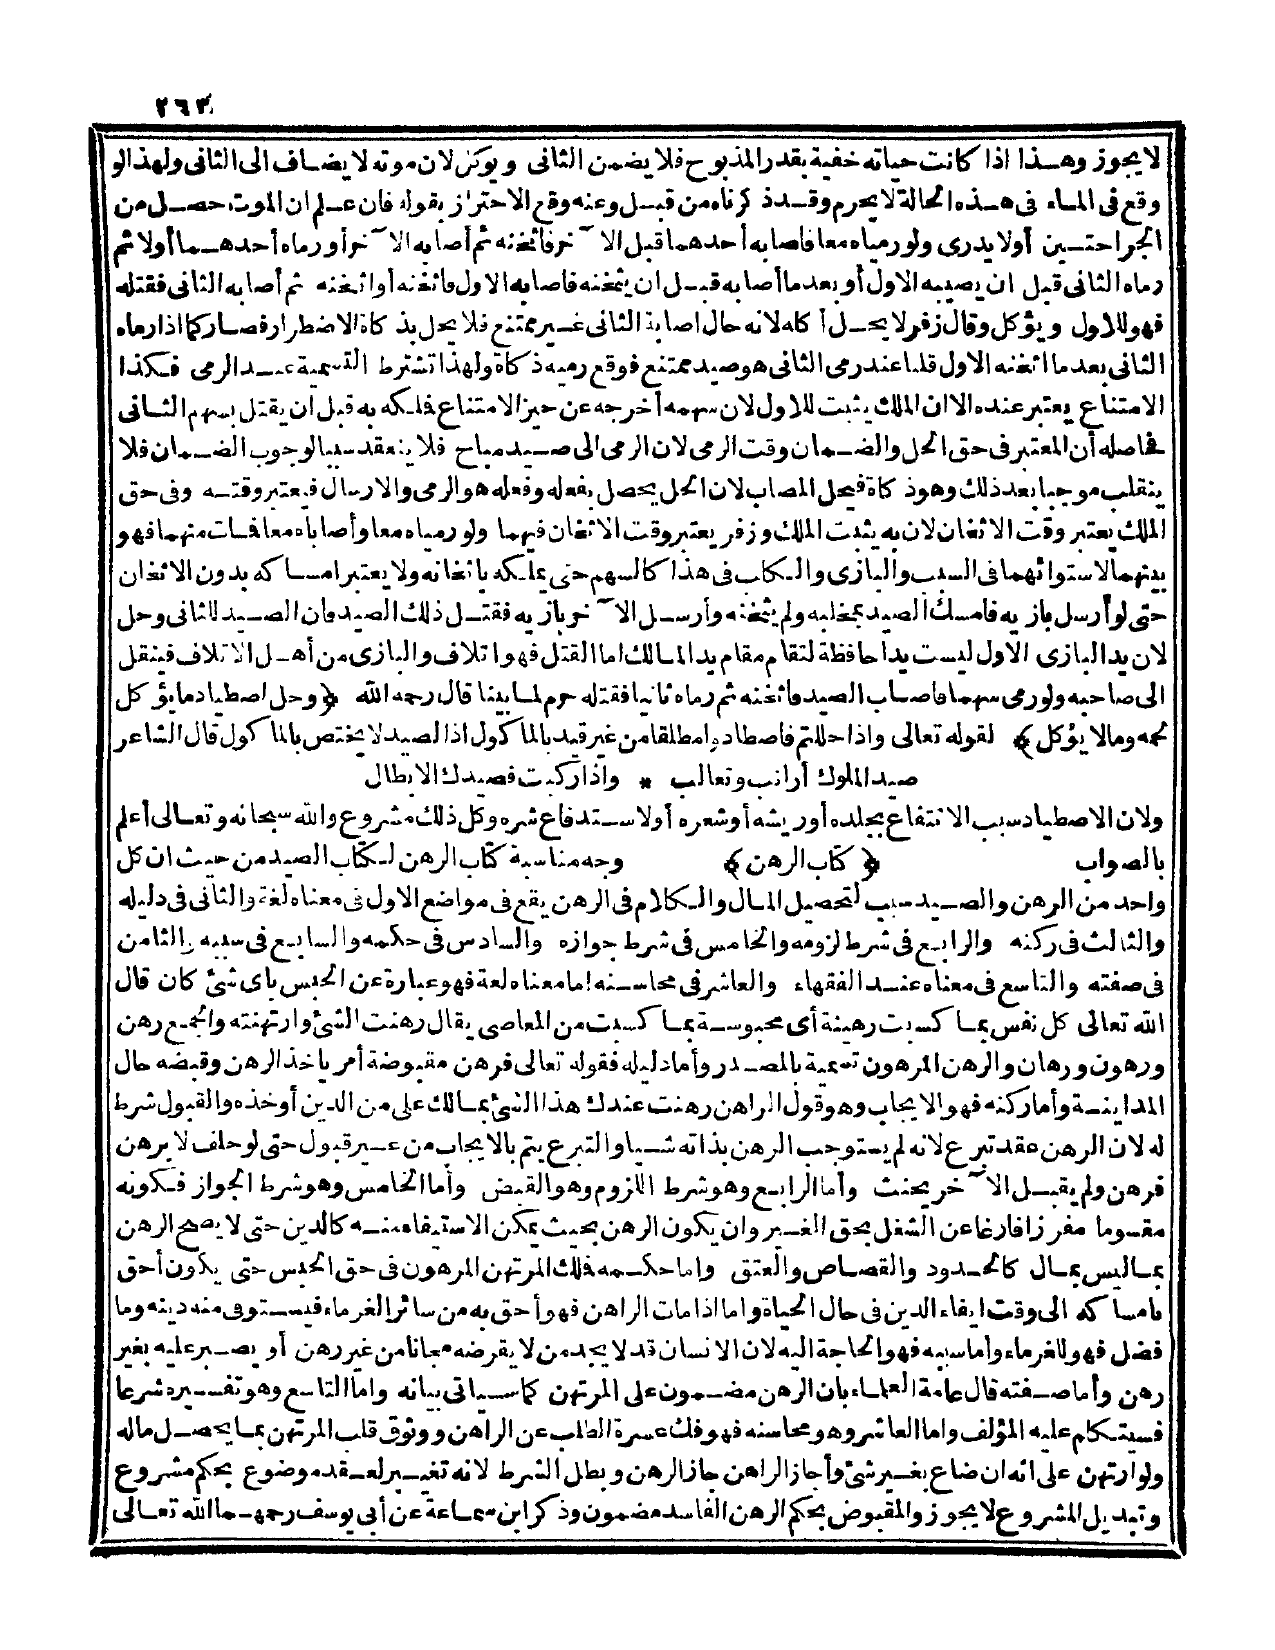 ٢٦٣
لا يجوز وهذا اذا كانت حياته خفية بقدر المذبوح فلا يضمن الثانى ويؤكل لان موته لا يضاف الى الثانى ولهذا لو
وقع فى الماء فى هذه الحالة لا يحرم وقد ذكرناه من قبل وعنه وقع الاحتراز بقوله فان علم ان الموت حصل من
الجراحتين أولا يدرى ولو رمياه معا فاصابه أحدهما قبل الآخر فاثخنه ثم أصابه الآخر أو رماه أحدهما أولا ثم
رماه الثانى قبل ان يصيبه الاول أو بعد ما أصابه قبل ان يثخنه فاصابه الاول فاثخنه أو اثخنه ثم أصابه الثانى فقتله
فهو للاول ويؤكل وقال زفر لا يحل أكله لانه حال اصابة الثانى غير ممتنع فلا يحل بذكاة الاضطرار فصار كما اذا رماه
الثانى بعد ما اثخنه الاول قلنا عند رمى الثانى هو صيد ممتنع فوقع رميه ذكاة ولهذا تشترط التسمية عند الرمى فكذا
الامتناع يعتبر عنده الا ان الملك يثبت للاول لان سهمه أخرجه عن حيز الامتناع فلكه به قبل ان يقتل بسهم الثانى
فحاصله أن المعتبر فى حق الحل والضمان وقت الرمى لان الرمى الى صيد مباح فلا ينعقد سببا لوجوب الضمان فلا
ينقلب موجبا بعد ذلك وهو ذكاة فيحل المصاب لان الحل يحصل بفعله وفعله هو الرمى والارسال فيعتبر وقته وفى حق
الملك يعتبر وقت الاثخان لان به يثبت الملك وزفر يعتبر وقت الاثخان فيهما ولو رمياه معا وأصاباه معا فمات منهما فهو
بينهما لاستوائهما فى السبب والبازى والكلب فى هذا كالسهم حتى يملكه باثخانه ولا يعتبر امساكه بدون الاثخان
حتى لو أرسل بازيه فامسك الصيد بمخلبه ولم يثخنه وأرسل الآخر بازيه فقتل ذلك الصيد فان الصيد للثانى وحل
لان يد البازى الاول ليست يدا حافظة لتقام مقام يد المالك اما القتل فهو اتلاف والبازى من أهل الاتلاف فينقل
الى صاحبه ولو رمى سهما فاصاب الصيد فاثخنه ثم رماه ثانيا فقتله حرم لما بينا قال رحمه الله ﴿وحل اصطياد ما يؤكل
لحمه وما لا يؤكل﴾ لقوله تعالى واذا حللتم فاصطادوا مطلقا من غير قيد بالمأكول اذ الصيد لا يختص بالمأكول قال الشاعر
صيد الملوك أرانب وثعالب * واذا ركبت فصيدك الابطال
ولان الاصطياد سبب الانتفاع بجلده أو ريشه أو شعره أو لاستدفاع شره وكل ذلك مشروع والله سبحانه وتعالى أعلم
بالصواب ﴿كتاب الرهن﴾ وجه مناسبة كتاب الرهن لكتاب الصيد من حيث ان كل
واحد من الرهن والصيد سبب لتحصيل المال والكلام فى الرهن يقع فى مواضع الاول فى معناه لغة والثانى فى دليله
والثالث فى ركنه والرابع فى شرط لزومه والخامس فى شرط جوازه والسادس فى حكمه والسابع فى سببه والثامن
فى صفته والتاسع فى معناه عند الفقهاء والعاشر فى محاسنه اما معناه لغة فهو عبارة عن الحبس باى شئ كان قال
الله تعالى كل نفس بما كسبت رهينة أى محبوسة بما كسبت من المعاصى يقال رهنت الشئ وارتهنته والجمع رهن
ورهون ورهان والرهن المرهون تسمية بالمصدر وأما دليله فقوله تعالى فرهن مقبوضة أمر باخذ الرهن وقبضه حال
المداينة وأما ركنه فهو الايجاب وهو قول الراهن رهنت عندك هذا الشئ بمالك على من الدين أو خذه والقبول شرط
له لان الرهن عقد تبرع لانه لم يستوجب الرهن بذاته شيأ والتبرع يتم بالايجاب من غير قبول حتى لو حلف لا يرهن
فرهن ولم يقبل الآخر يحنث وأما الرابع وهو شرط اللزوم وهو القبض وأما الخامس وهو شرط الجواز فكونه
مقسوما مفرزا فارغا عن الشغل بحق الغير وان يكون الرهن بحيث يمكن الاستيفاء منه كالدين حتى لا يصح الرهن
بما ليس بمال كالحدود والقصاص والعتق واما حكمه فملك المرتهن المرهون فى حق الحبس حتى يكون أحق
بامساكه الى وقت ايفاء الدين فى حال الحياة واما اذا مات الراهن فهو أحق به من سائر الغرماء فيستوفى منه دينه وما
فضل فهو للغرماء وأما سببه فهو الحاجة اليه لان الانسان قد لا يجد من لا يقرضه مجانا من غير رهن أو يصبر عليه بغير
رهن وأما صفته قال عامة العلماء بان الرهن مضمون على المرتهن كما سيأتى بيانه واما التاسع وهو تفسيره شرعا
فسيتكلم عليه المؤلف واما العاشر وهو محاسنه فهو فك عسرة الطلب عن الراهن ووثوق قلب المرتهن بما يحصل ماله
ولو ارتهن على انه ان ضاع بغير شئ وأجاز الراهن جاز الرهن وبطل الشرط لانه تغيير لعقد موضوع بحكم مشروع
وتبديل المشروع لا يجوز والمقبوض بحكم الرهن الفاسد مضمون وذكر ابن سماعة عن أبى يوسف رحمهما الله تعالى